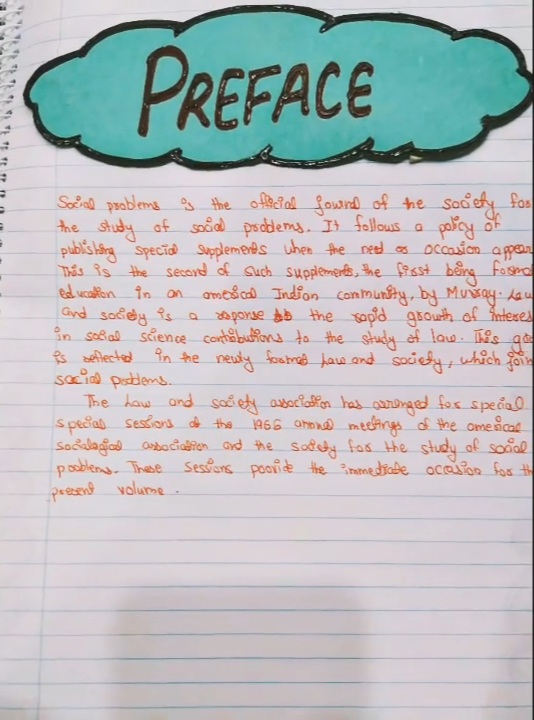 PREFACE
Social problems is the official journal of the society for
the study of social problems. It follows a policy of
publishing special supplements when the need or occasion appear
This is the second of such supplements, the first being formal
education in an americal Indian community, by Murray. Law
and society is a reponse to the rapid growth of interes
in social science contributions to the study of law. This
is reflected in the newly formed Law and society, which join
social problems.
The Law and society association has arranged for special
special sessions at the 1966 annual meetings of the americal
sociological association and the society for the study of social
problems. These sessions poovide the immediate occasion for th
present volume.